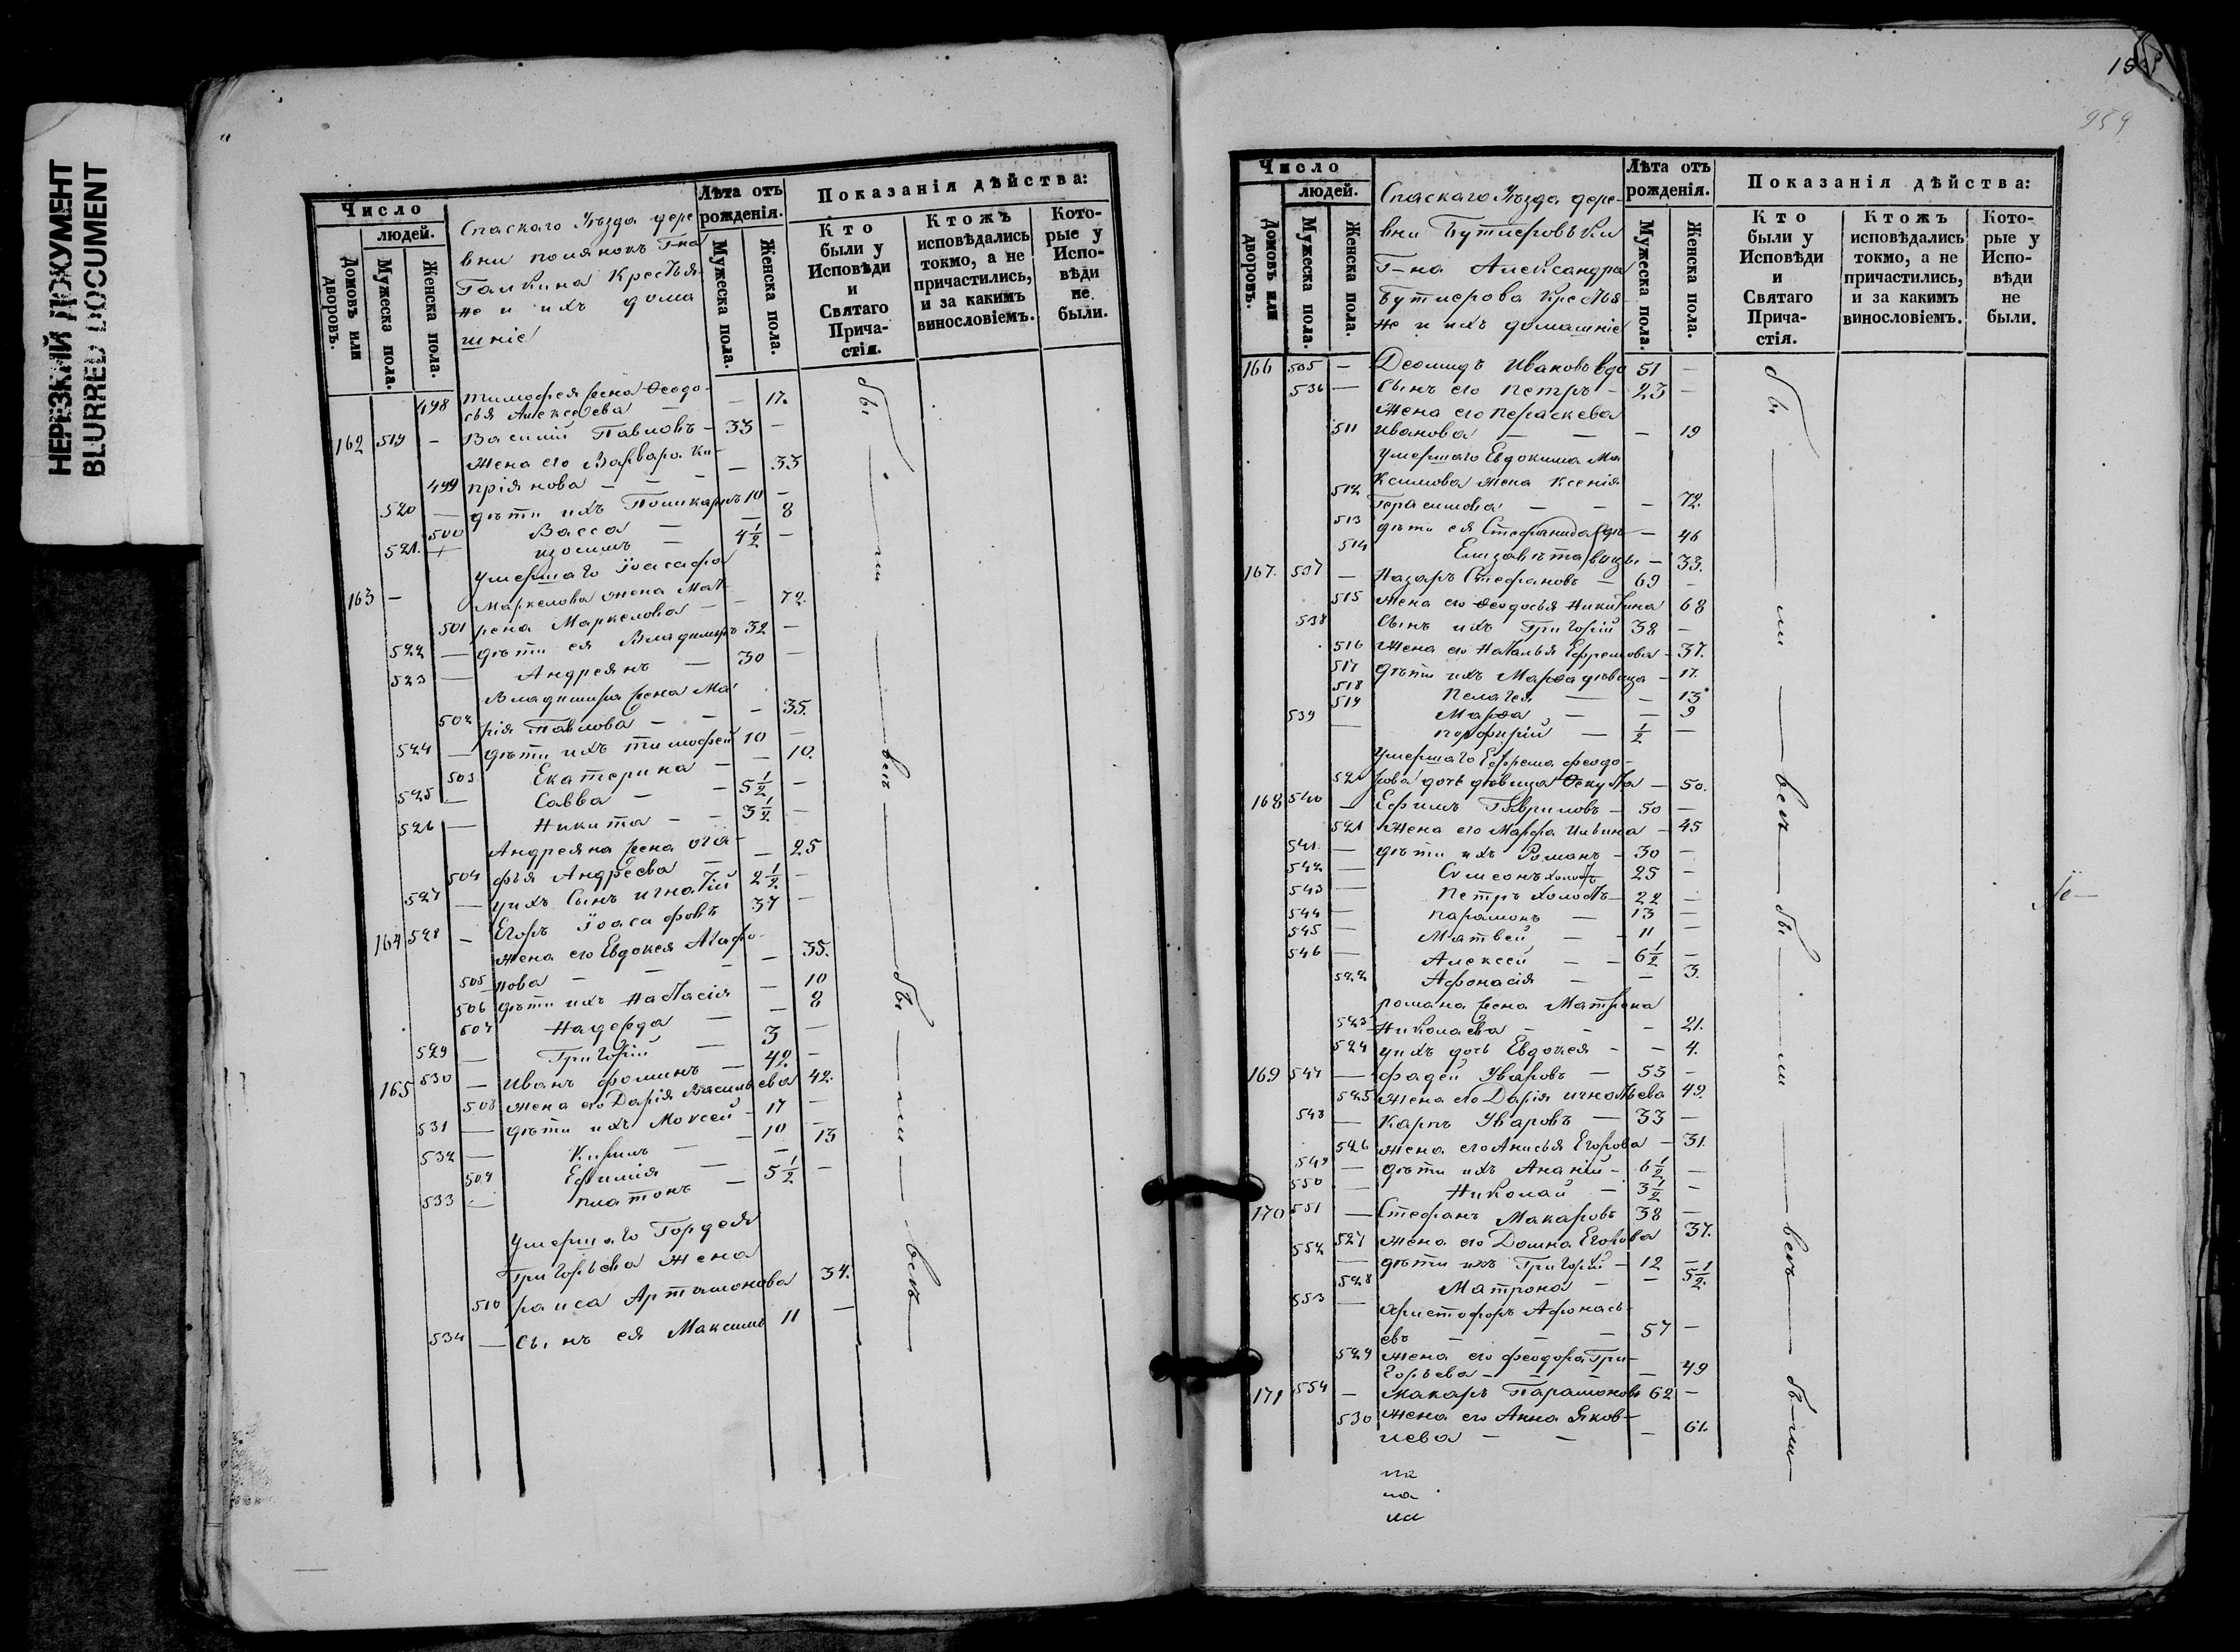 НЕРЕЗКИЙ ДОКУМЕНТ
BLURRED DOCUMENT
Число
людей.
Домовъ или дворовъ.
Мужеска пола.
Женска пола.
Спаскаго Уѣзда дере
вни полянокъ Г-на
Галкина Крестья-
не и ихъ дома
шніе
Лѣта отъ рожденія.
Мужеска пола.
Женска пола.
Показанія дѣйства:
Кто были у Исповѣди и Святаго Причастія.
Ктожъ исповѣдались токмо, а не причастились, и за какимъ винословіемъ.
Которые у Исповѣди не были.
Тимофея жена Ѳеодо-
498 сья Алексеева — 17.
162 519 — Василий Павловъ — 33 —
Жена его Варвара Ки-
499 пріянова — — — 33
520 — дѣти ихъ Поликарпъ 10 —
500 Васса — — 8
521. изосимъ — 4 1/2 —
163 — умершаго Іоасафа
Маркелова жена Мат
501 рена Маркелова — — 72.
522 — дѣти ея Владимиръ 32 —
523 — Андреянъ — 30 —
Владимира жена Ма
502 рія Павлова — — — 35.
524 — дѣти ихъ тимофей 10 —
503 Екатерина — — 10.
525 — Савва — — 5 1/2 —
526 — Никита — — 3 1/2 —
Андреяна жена ага-
504 фья Андреева — — 25
527 — у ихъ Сынъ игнатій 2 1/2 —
164 528 — Егоръ Іоасафовъ 37 —
жена его Евдокея Агафо-
505 нова — — — — 35.
506 дѣти ихъ Настасія — 10
507 Надежда — — 8
529 — Григорій — 3 —
165 530 — Иванъ фоминъ — 42. —
508 жена его Дарія Васильева 42.
531 — дѣти ихъ Моксей — 17 —
532 — Кирилъ — — 10 —
509 Ефимія — — 13
533 — платонъ — 5 1/2 —
умершаго Гордея
Григорьева жена
510 раиса Артамонова 34.
534 — Сынъ ея Максимъ 11 —
бы — ли — всѣ — бы — ли — всѣ —
959
Число
людей.
Домовъ или дворовъ.
Мужеска пола.
Женска пола.
Спаскаго Уѣзда дере-
вни Бутлеровъки
Г-на Александра
Бутлерова Крестья
не и ихъ домашніе
Лѣта отъ рожденія.
Мужеска пола.
Женска пола.
Показанія дѣйства:
Кто были у Исповѣди и Святаго Причастія.
Ктожъ исповѣдались токмо, а не причастились, и за какимъ винословіемъ.
Которые у Исповѣди не были.
166 535 — Деомидъ Ивановъ вдо 51 —
536 — Сынъ его петръ — 23 —
Жена его пераскева
511 иванова — — — 19
умершаго Евдокима Ма
ксимова жена Ксенія
512 Герасимова — — — 72.
513 дѣти ея Стефанида дѣ- — 46
514 Елизавѣта вицы — 33.
167. 537 — Назаръ Стефановъ — 69 —
515 жена его Ѳеодосья Никитина 68
538 Сынъ ихъ Григорій 38 —
516 жена его Наталья Ефремова — 37.
517 дѣти ихъ Марѳа дѣвица — 17.
518 пелагея — — 13
519 Марѳа — — 9
539 — порфирій — 1/2 —
умершаго Ефрема феодо-
520 рова дочь дѣвица Ѳекуста — 50.
168 540 — Ефимъ Гавриловъ — 50 —
521 жена его Марфа Ильина — 45
541. — дѣти ихъ Романъ — 30 —
542 — Симеонъ холостъ 25 —
543 — петръ холостъ — 22 —
544 — парамонъ — 13 —
545 — Матвей — — 11 —
546 — Алексей — — 6 1/2 —
522 Афонасія — — 3.
романа жена Матрона
523 Николаева — — — 21.
524 у ихъ дочь Евдокея — — 4.
169 547 — фадей Уваровъ — 53 —
525 жена его Дарія игнатьева 49.
548 — Карпъ Уваровъ — 33 —
526 жена его Анисья Егорова — 31.
549 — дѣти ихъ Ананій — 6 1/2 —
550 — Николай — 3 1/2 —
170 551 — Стефанъ Макаровъ 38 —
527 жена его Домна Егорова 37.
552 — дѣти ихъ Григорій — 12 —
528 Матрона — — 5 1/2.
553 — Христофоръ Афонась-
евъ — — — 57 —
529 жена его феодора Гри-
горьева — — — 49
171 554 — Макаръ Парамоновъ 62 —
530 жена его Анна Яков-
лева — — — 61.
бы — ли — всѣ — бы — ли — всѣ — были